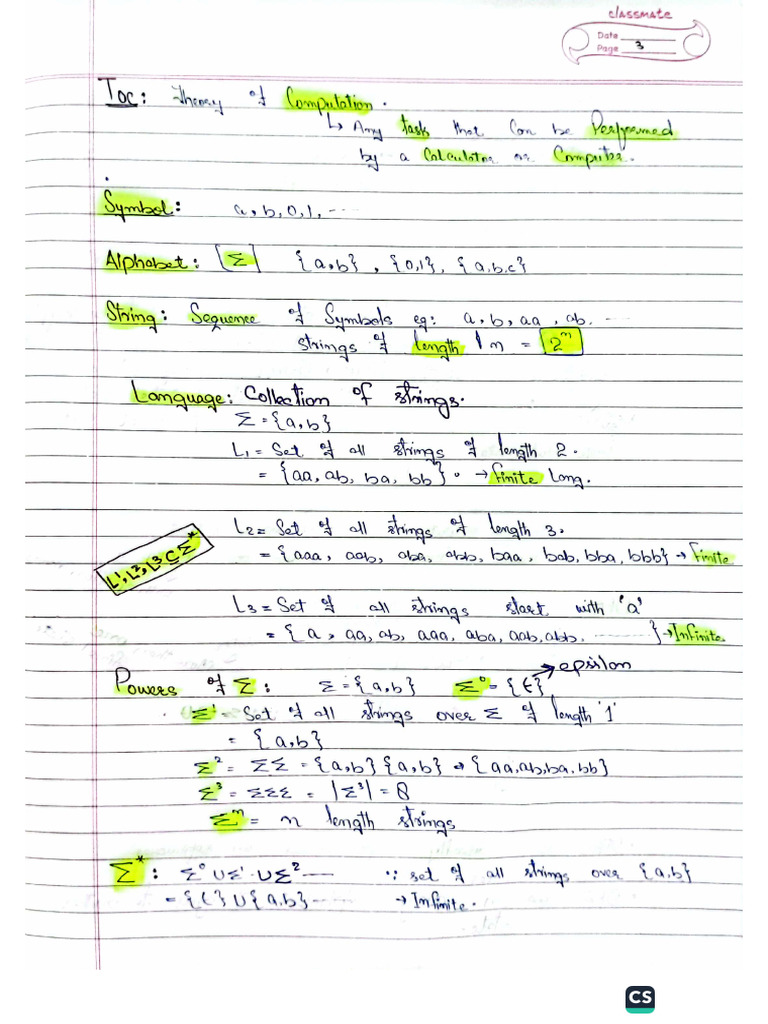 classmate
Date
Page 3
Toc: Theory of Computation.
↳ Any task that can be Performed
by a Calculator or Computer.
Symbol: a, b, 0, 1, ....
Alphabet: [Σ] {a,b}, {0,1}, {a,b,c}
String: Sequence of Symbols eg: a, b, aa, ab. ....
strings of length n = 2ⁿ
Language: Collection of strings.
Σ = {a,b}
L₁ = Set of all strings of length 2.
= {aa, ab, ba, bb}. → Finite Lang.
L₂ = Set of all strings of length 3.
= {aaa, aab, aba, abb, baa, bab, bba, bbb} → Finite
L¹, L², L³ ⊆ Σ*
L₃ = Set of all strings start with 'a'
= {a, aa, ab, aaa, aba, aab, abb. ........} → Infinite.
Powers of Σ: Σ = {a,b} Σ⁰ = {ϵ} → epsilon
Σ¹ = Set of all strings over Σ of length '1'
= {a,b}
Σ² = ΣΣ = {a,b} {a,b} → {aa,ab,ba,bb}
Σ³ = ΣΣΣ = |Σ³| = 8
Σⁿ = n length strings
Σ*: Σ⁰ ∪ Σ¹ ∪ Σ² ---- ∵ set of all strings over {a,b}
= {ϵ} ∪ {a,b} ---- → Infinite.
CS